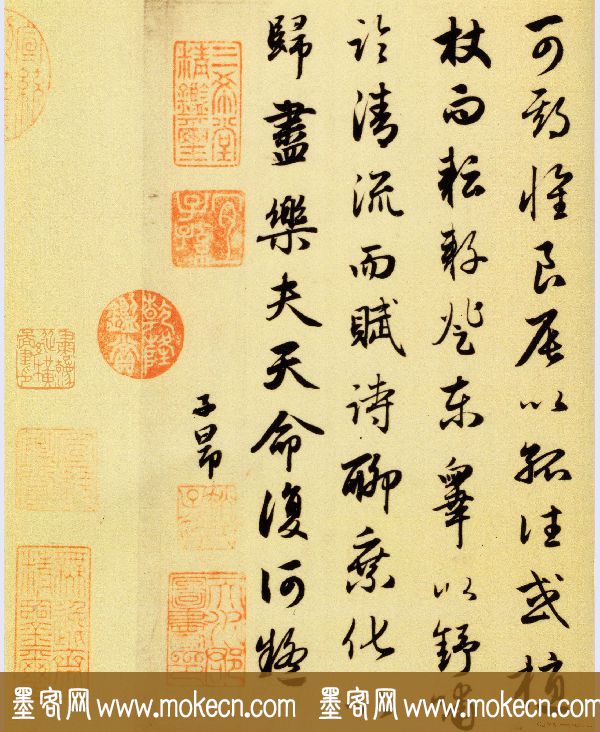 可期懷良辰以孤往或植
杖而耘耔登東皋以舒嘯
臨清流而賦詩聊乘化
歸盡樂夫天命復何疑
子昂
三希堂精鑑璽
宜子孫
乾隆鑑賞
墨客网 www.mokecn.com 墨客网 www.mokecn.com